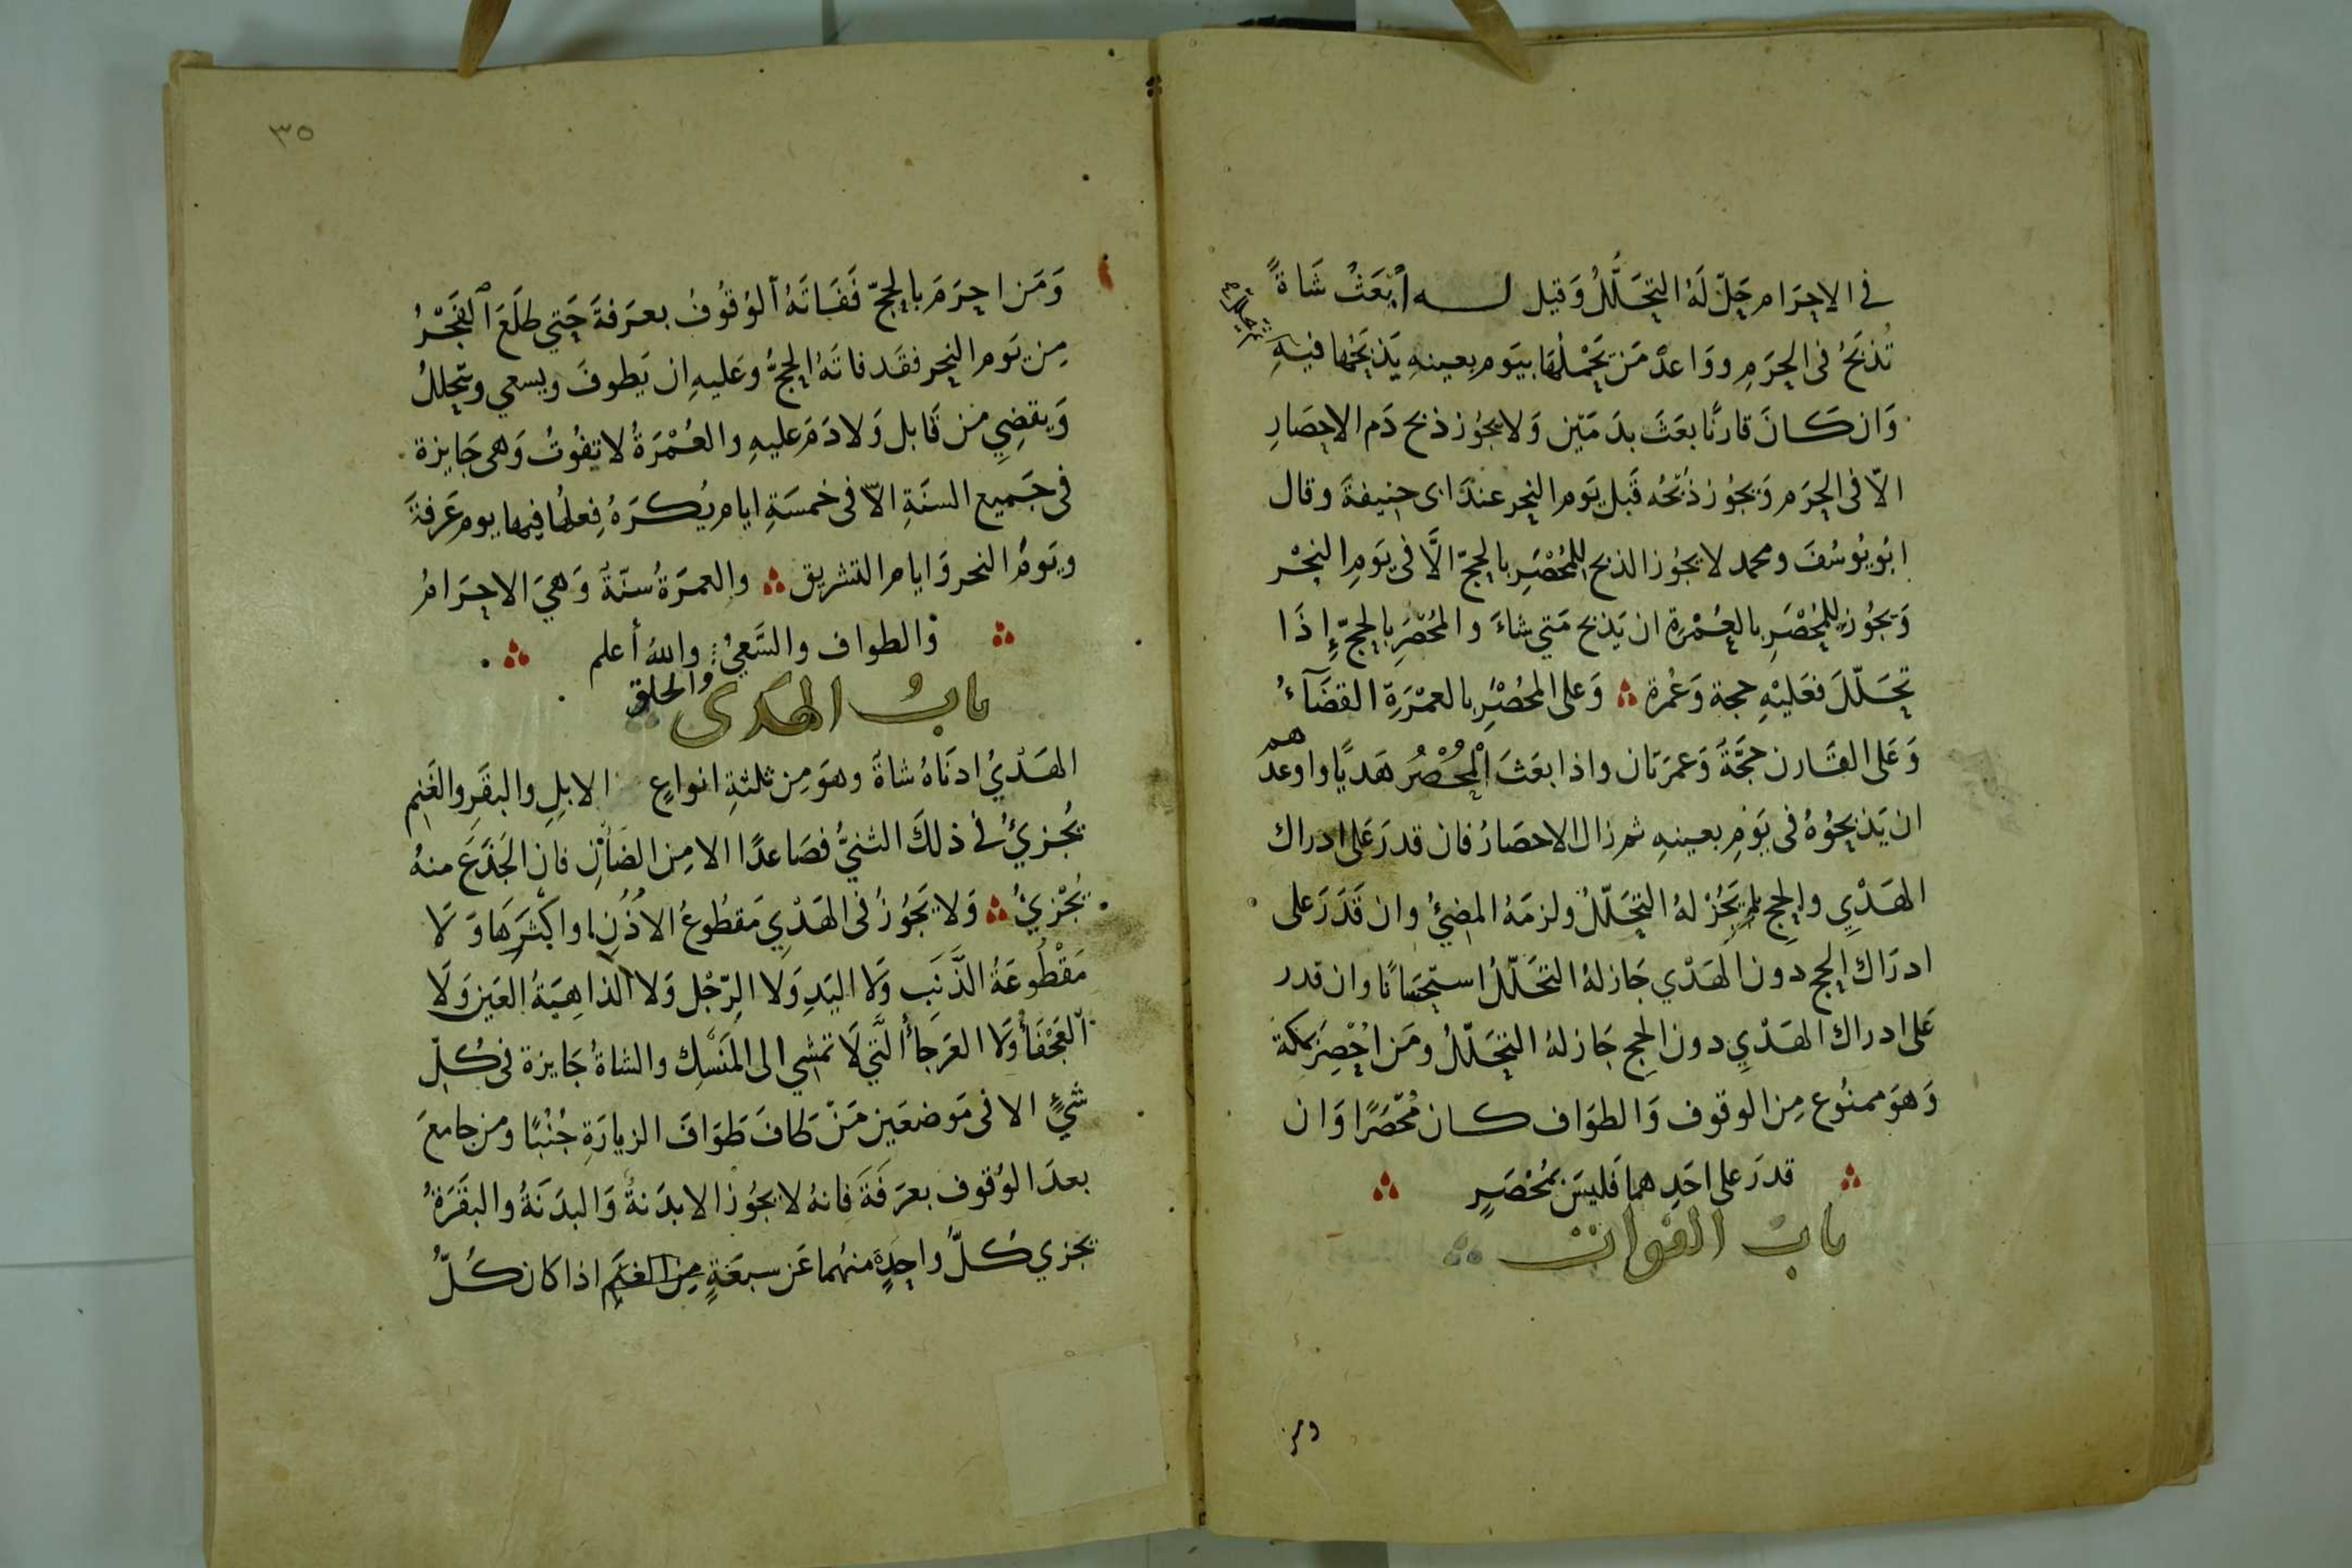 في الاحرام حل له التحلل وقيل له أبعث شاةً
تذبح في الحرم وواعد من يحملها بيوم بعينه يذبحها فيه
وان كان قارنًا بعث بدمين ولا يجوز ذبح دم الاحصار
الّا في الحرم ويجوز ذبحه قبل يوم النحر عند ابي حنيفة وقال
ابو يوسف ومحمد لا يجوز الذبح للمحصر بالحج الّا في يوم النحر
ويجوز للمحصر بالعمرة ان يذبح متي شاء والمحصر بالحج إذا
تحلّل فعليه حجة وعمرة وعلى المحصر بالعمرة القضآء
وعلى القارن حجّة وعمرتان واذا بعث المحصر هديًا وواعدهم
ان يذبحوه في يوم بعينه ثم زال الاحصار فان قدر على ادراك
الهدي والحج لم يجز له التحلّل ولزمه المضيُ وان قدر على
ادراك الحج دون الهدي جاز له التحلّل استحسانًا وان قدر
على ادراك الهدي دون الحج جاز له التحلّل ومن احصر بمكة
وهو ممنوع من الوقوف والطواف كان محصرًا وان
قدر على احدهما فليس بمحصرٍ
باب الفوات
ومن
٣٥
ومن احرم بالحج ففاته ٱلوقوف بعرفة حتي طلع ٱلفجر
من يوم النحر فقد فاته الحج وعليه ان يطوف ويسعي ويتحلل
ويقضي من قابل ولا دم عليه والعمرة لا تفوت وهى جايزة
في جميع السنة الّا في خمسة ايام يكره فعلها فيها يوم عرفة
ويوم النحر وايام التشريق والعمرة سنّة وهي الاحرام
والطواف والسعي والله أعلم
والحلق
باب الهدى
الهدي ادناه شاة وهو من ثلثة انواع الابل والبقر والغنم
يجزئ في ذلك الثنيّ فصاعدًا الا من الضأن فان الجذع منه
يجزئ ولا يجوز في الهدي مقطوع الاذن او اكثرها ولا
مقطوعة الذنب ولا اليد ولا الرّجل ولا الذاهبة العين ولا
العجفأ ولا العرجأ الّتي لا تمشي الى المنسك والشاة جايزة في كلّ
شيءٍ الا في موضعين من طاف طواف الزيارة جنبًا ومن جامع
بعد الوقوف بعرفة فانه لا يجوز الا بدنة والبدنة والبقرة
يجزي كلّ واحدة منهما عن سبعة من الغنم اذا كان كلّ